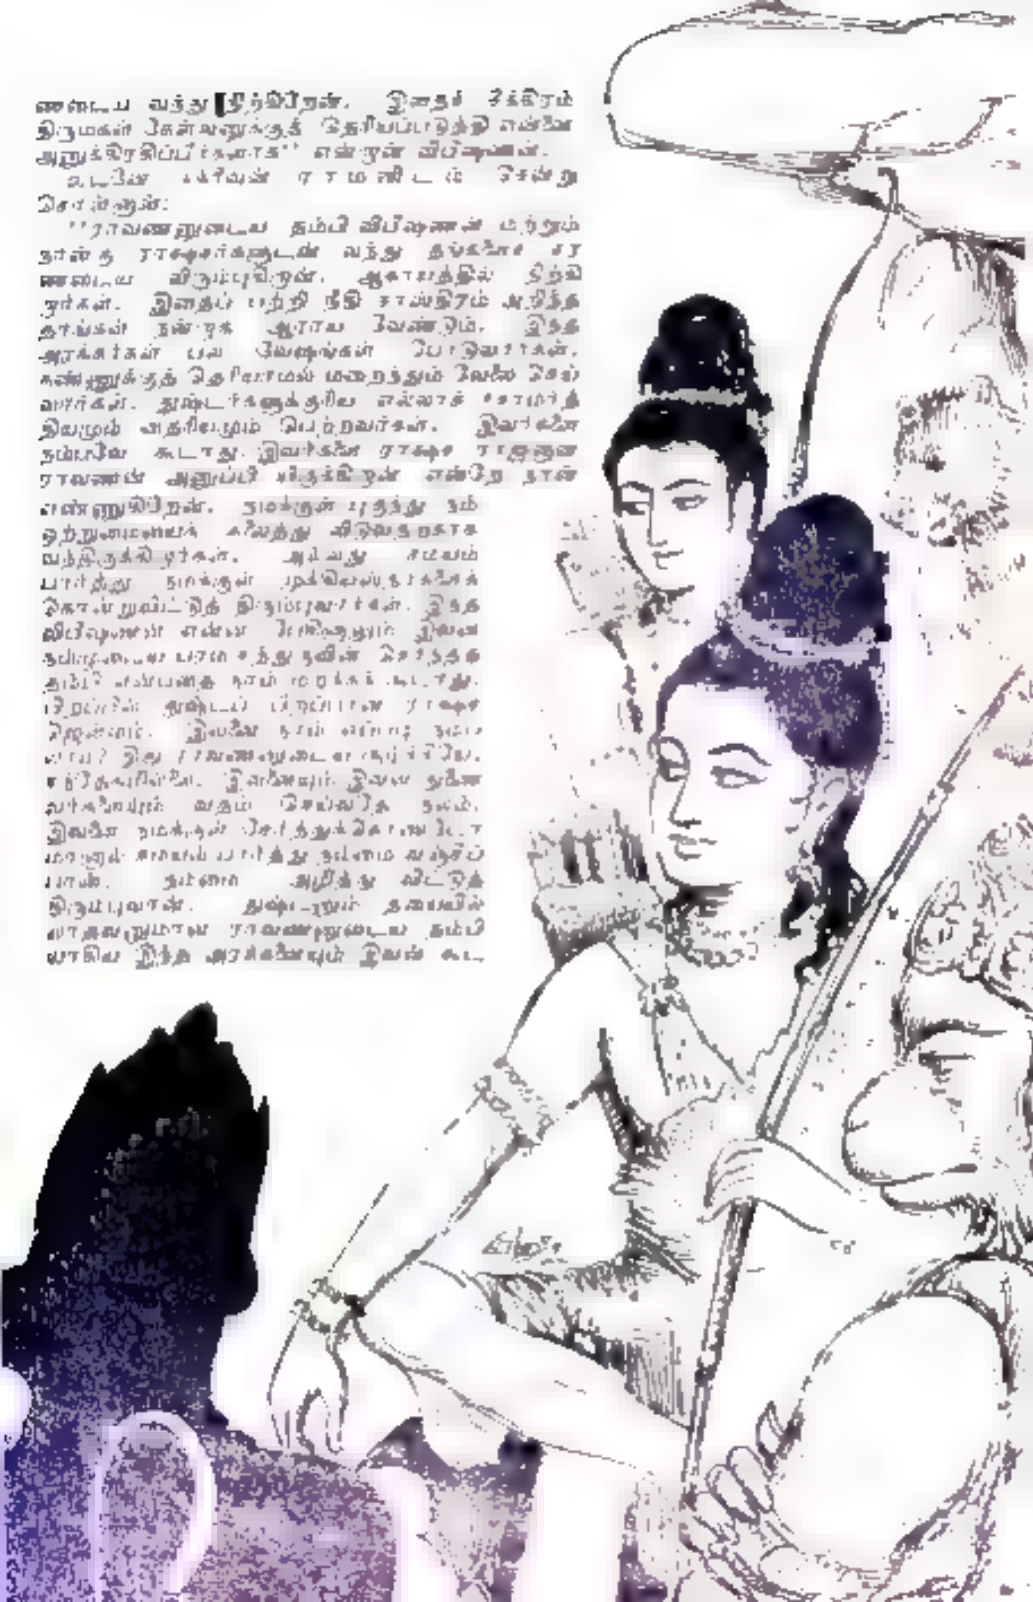 ணடைய வந்து நிற்கிறேன். இதைச் சீக்கிரம்
திருமகள் கேள்வனுக்குத் தெரியப்படுத்தி என்னை
அனுக்கிரகிப்பீர்களாக'' என்றான் விபீஷணன்.
உடனே சுக்ரீவன் ராமனிடம் சென்று
சொன்னான்:
''ராவணனுடைய தம்பி விபீஷணன் மற்றும்
நான்கு ராக்ஷசர்களுடன் வந்து தங்களைச் சர
ணடைய விரும்புகிறான். ஆகாயத்தில் நிற்கி
றார்கள். இதைப் பற்றி நீதி சாஸ்திரம் அறிந்த
தாங்கள் நன்றாக ஆராய வேண்டும். இந்த
அரக்கர்கள் பல வேஷங்கள் போடுவார்கள்.
கண்ணுக்குத் தெரியாமல் மறைந்தும் வேலை செய்
வார்கள். துஷ்டர்களுக்குரிய எல்லாச் சாமர்த்
தியமும் தைரியமும் பெற்றவர்கள். இவர்களை
நம்பவே கூடாது. இவர்களை ராக்ஷச ராஜனான
ராவணன் அனுப்பி யிருக்கிறான் என்றே நான்
எண்ணுகிறேன். நமக்குள் புகுந்து நம்
ஒற்றுமையைக் கலைத்து விடுவதற்காக
வந்திருக்கிறார்கள். அல்லது சமயம்
பார்த்து நமக்குள் முக்கியஸ்தர்களைக்
கொன்றுவிட்டுத் திரும்புவார்கள். இந்த
விபீஷணன் என்ன பேசினாலும் இவன்
நம்முடைய பரம சத்துருவின் சொந்தத்
தம்பி என்பதை நாம் மறக்கக் கூடாது.
பிறப்பில் துஷ்டப் பிறப்பான ராக்ஷச
ஜென்மம். இவனை நாம் எப்படி நம்ப
லாம்? இது ராவணனுடைய சூழ்ச்சியே.
சந்தேகமில்லை. இவனையும் இவன் துணை
வர்களையும் வதம் செய்வதே நலம்.
இவனை நமக்குள் சேர்த்துக்கொண்டோ
மானால் சமயம் பார்த்து நம்மை வஞ்சிப்
பான். நம்மை அழித்து விட்டுத்
திரும்புவான். துஷ்டனும் தலையில்
லாதவனுமான ராவணனுடைய தம்பி
யாகிய இந்த அரக்கனையும் இவன் கூட